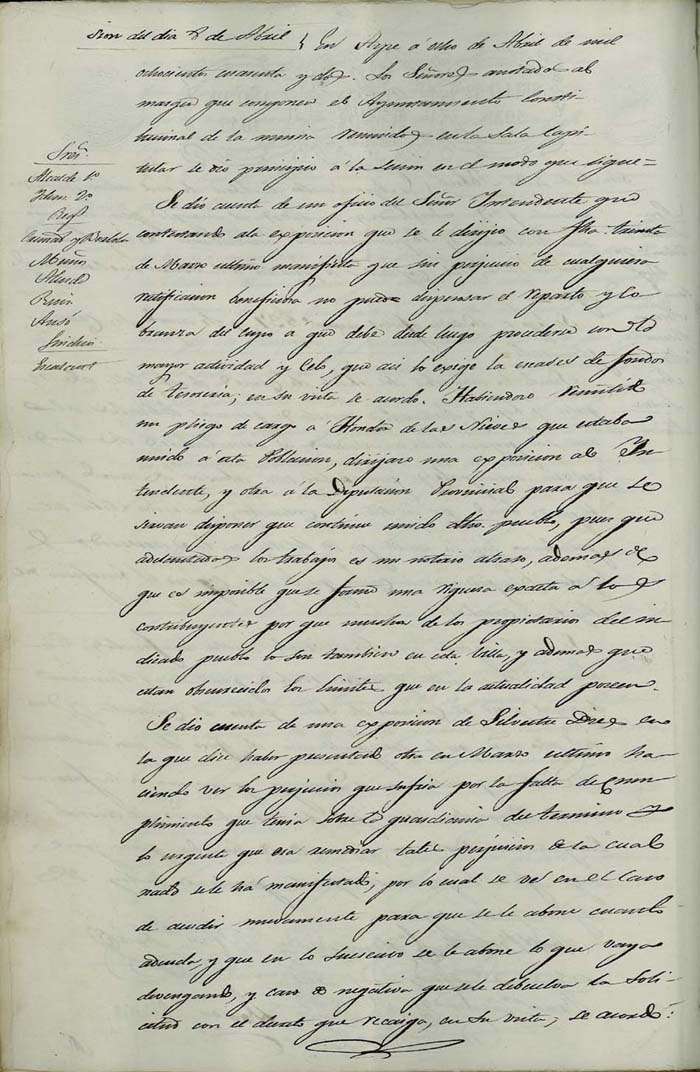 sion del dia 8 de Abril } En Aspe á ocho de Abril de mil
ochocientos cuarenta y dos. Los Señores anotados al
margen que componen el Ayuntamiento Consti-
tucional de la misma reunidos en la Sala Capi-
tular se dio principio á la sesion en el modo que sigue=
Sres.
Alcalde 1º
Idem 2º
Regs
Muñoz
Ruiz
Ansó
Sindico
Se dió cuenta de un oficio del Señor Intendente que
contestando ala exposicion que se le dirijio con fha. treinta
de Marzo ultimo manifiesta que sin perjuicio de cualquiera
retificacion beneficiosa no puede dispensar el reparto y co
branza del cupo á que debe desde luego procederse con la
mayor actividad y Celo, que asi lo exige la escases de fondos
de tesoreria; en su vista se acordo. Habiendose remitido
un pliego de cargo á Hondon de las Nieves que estaba
unido á esta Poblacion, dirijase una exposicion al In
tendente, y otra á la Diputacion Provincial para que se
sirvan disponer que continue unido dho. pueblo, pues que
adelantados los trabajos es un notorio atraso, ademas de
que es imposible que se forme una riqueza exacta á los
contribuyentes por que muchos de los propietarios del in
dicado pueblo lo son tambien en esta Villa, y ademas que
estan obscurecidos los limites que en la actualidad poseen.
Se dio cuenta de una exposicion de Silvestre Diez en
la que dice haber presentado otra en Marzo ultimo ha
ciendo ver los perjuicios que sufria por la falta de cum
plimiento que tenia sobre la guardiania del termino y
lo urgente que era remediar tales perjuicios de la cual
nada se le há manifestado, por lo cual se vé en el Caso
de acudir nuevamente para que se le abone cuanto
adeuda, y que en lo sucesivo se le abone lo que vaya
devengando, y caso de negativa que se le debuelva la Soli-
citud con el decreto que recaiga, en su vista, se acordó: